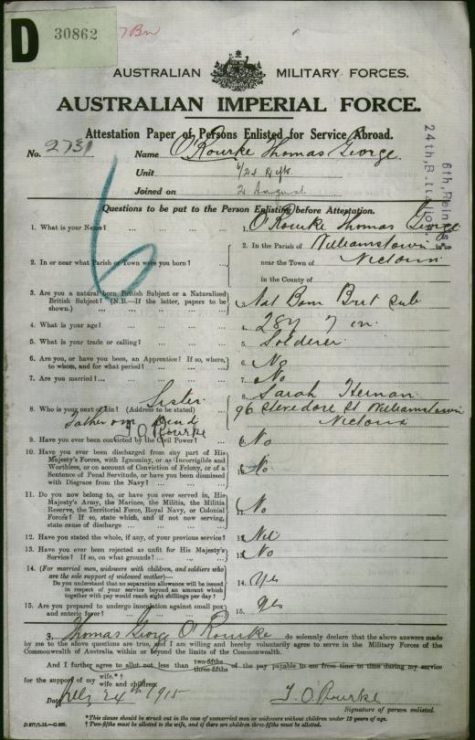 D 30862 7Bn
AUSTRALIAN MILITARY FORCES.
AUSTRALIAN IMPERIAL FORCE.
Attestation Paper of Persons Enlisted for Service Abroad.
No. 2731 Name O'Rourke Thomas George.
Unit 6/24 Rfts
Joined on 2 August
6th, Reinfs.
24th, B
6
Questions to be put to the Person Enlisting before Attestation.
1. What is your Name? 1. O'Rourke Thomas George
2. In or near what Parish or Town were you born? 2. In the Parish of Williamstown in
near the Town of Victoria
in the County of
3. Are you a natural born British Subject or a Naturalised
British Subject? (N.B.—If the letter, papers to be
shown.) 3. Nat Born Brit sub
4. What is your age? 4. 28y 7m
5. What is your trade or calling? 5. Solderer
6. Are you, or have you been, an Apprentice? If so, where,
to whom, and for what period? 6. No
7. Are you married? 7. No
8. Who is your next of kin? (Address to be stated) Sister 8. Sarah Kernan
96 Stevedore St Williamstown
Victoria
Father
T. O'Rourke
9. Have you ever been convicted by the Civil Power? 9. No
10. Have you ever been discharged from any part of His
Majesty's Forces, with Ignominy, or as Incorrigible and
Worthless, or on account of Conviction of Felony, or of a
Sentence of Penal Servitude, or have you been dismissed
with Disgrace from the Navy? 10. No
11. Do you now belong to, or have you ever served in, His
Majesty's Army, the Marines, the Militia, the Militia
Reserve, the Territorial Force, Royal Navy, or Colonial
Forces? If so, state which, and if not now serving,
state cause of discharge 11. No
12. Have you stated the whole, if any, of your previous service? 12. Nil
13. Have you ever been rejected as unfit for His Majesty's
Service? If so, on what grounds? 13. No
14. (For married men, widowers with children, and soldiers who
are the sole support of widowed mother)—
Do you understand that no separation allowance will be issued
in respect of your service beyond an amount which
together with pay would reach eight shillings per day? 14. Yes
15. Are you prepared to undergo inoculation against small pox
and enteric fever? 15. Yes
I, Thomas George O'Rourke do solemnly declare that the above answers made
by me to the above questions are true, and I am willing and hereby voluntarily agree to serve in the Military Forces of the
Commonwealth of Australia within or beyond the limits of the Commonwealth.
And I further agree to allot not less than two-fifths three-fifths of the pay payable to me from time to time during my service
for the support of my wife.*†
wife and children.
Date July 24th 1915 T. O'Rourke
Signature of person enlisted.
*This clause should be struck out in the case of unmarried men or widowers without children under 18 years of age.
† Two-fifths must be allotted to the wife, and if there are children three-fifths must be allotted.